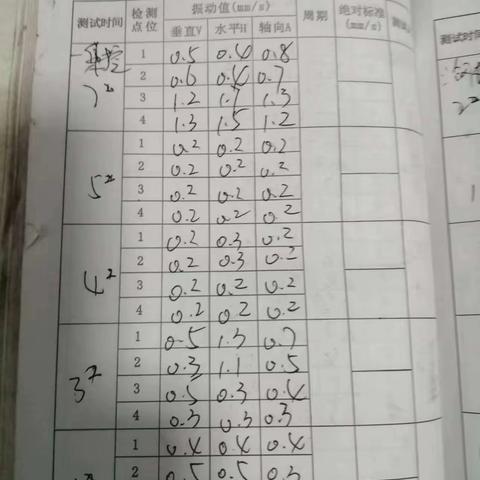 测试时间 检测点位 振动值(mm/s) 周期 绝对标准(mm/s) 测试
垂直V 水平H 轴向A
1 0.5 0.4 0.8
2 0.6 0.4 0.7
3 1.2 1.3
4 1.3 1.5 1.2
5# 1 0.2 0.2 0.2
2 0.2 0.2 0.2
3 0.2 0.2 0.2
4 0.2 0.2 0.2
4# 1 0.2 0.3 0.2
2 0.2 0.3 0.2
3 0.2 0.2 0.2
4 0.2 0.2 0.2
3# 1 0.5 1.3 0.7
2 0.3 1.1 0.5
3 0.5 0.3 0.4
4 0.3 0.3 0.3
1 0.4 0.4 0.4
2 0.5 0.5 0.3
测试时间